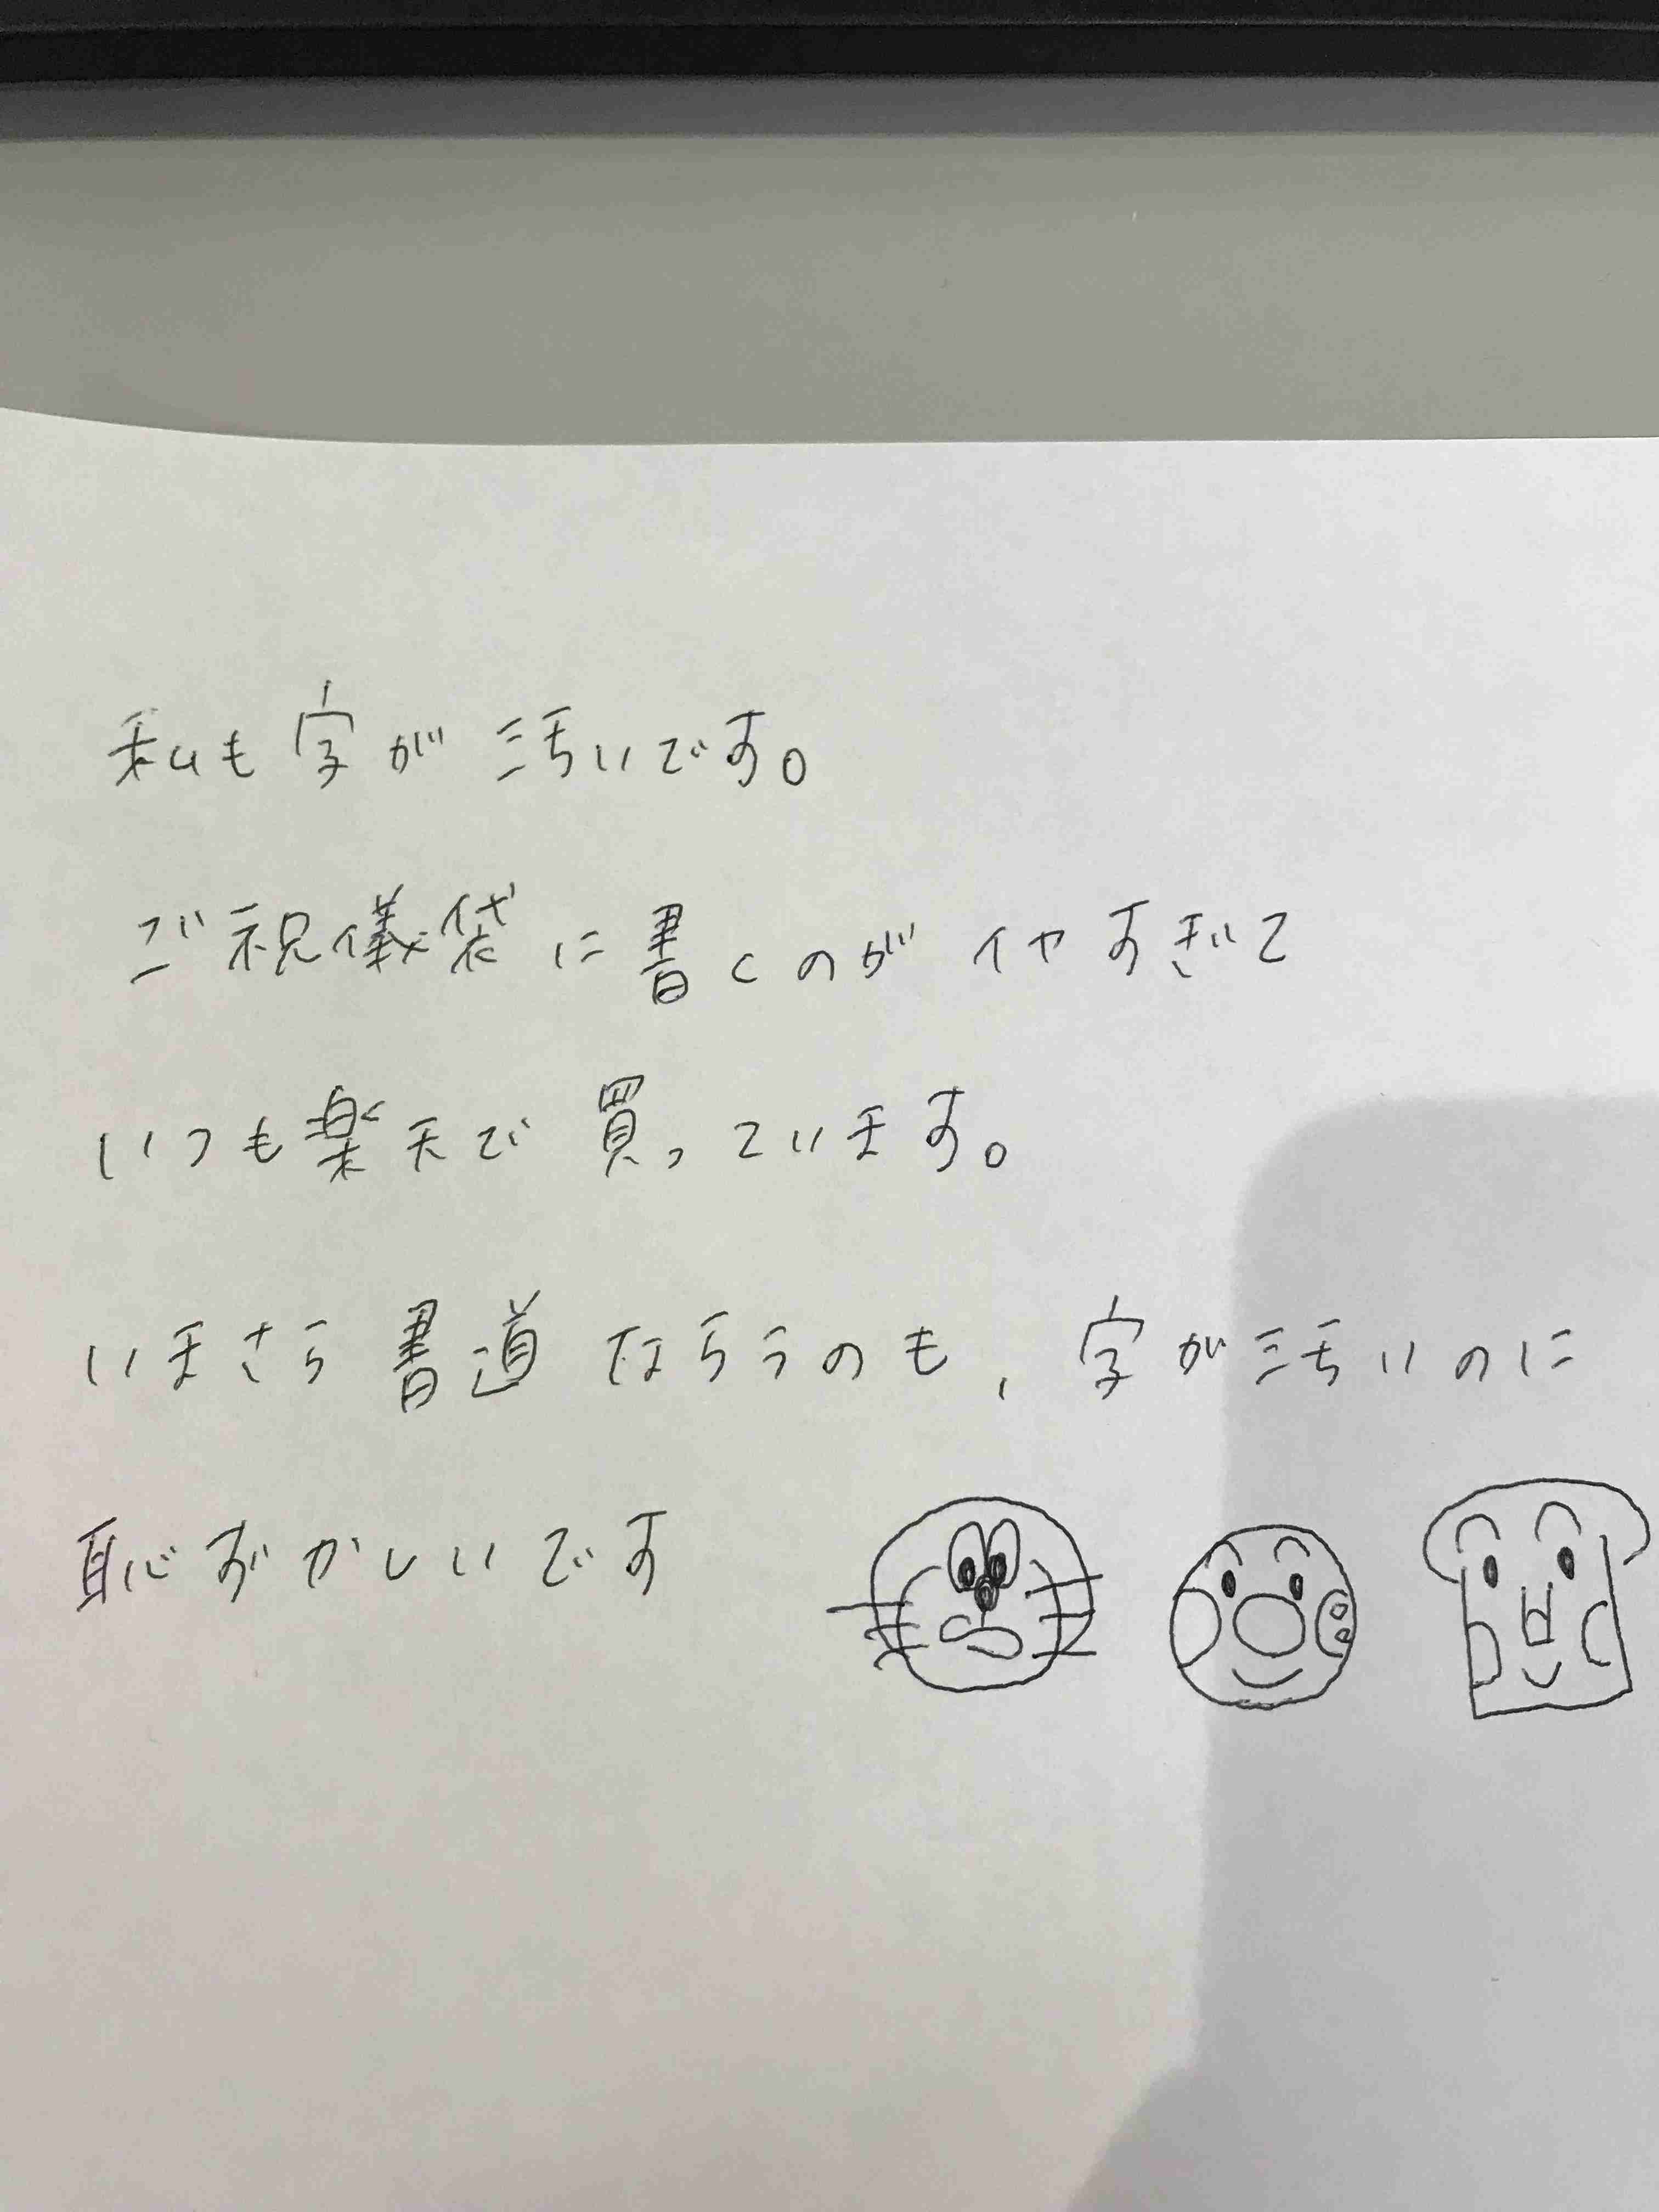 私も字が汚いです。
ご祝儀袋に書くのがイヤすぎて
いつも楽天で買っています。
いまさら書道ならうのも、字が汚いのに
恥ずかしいです